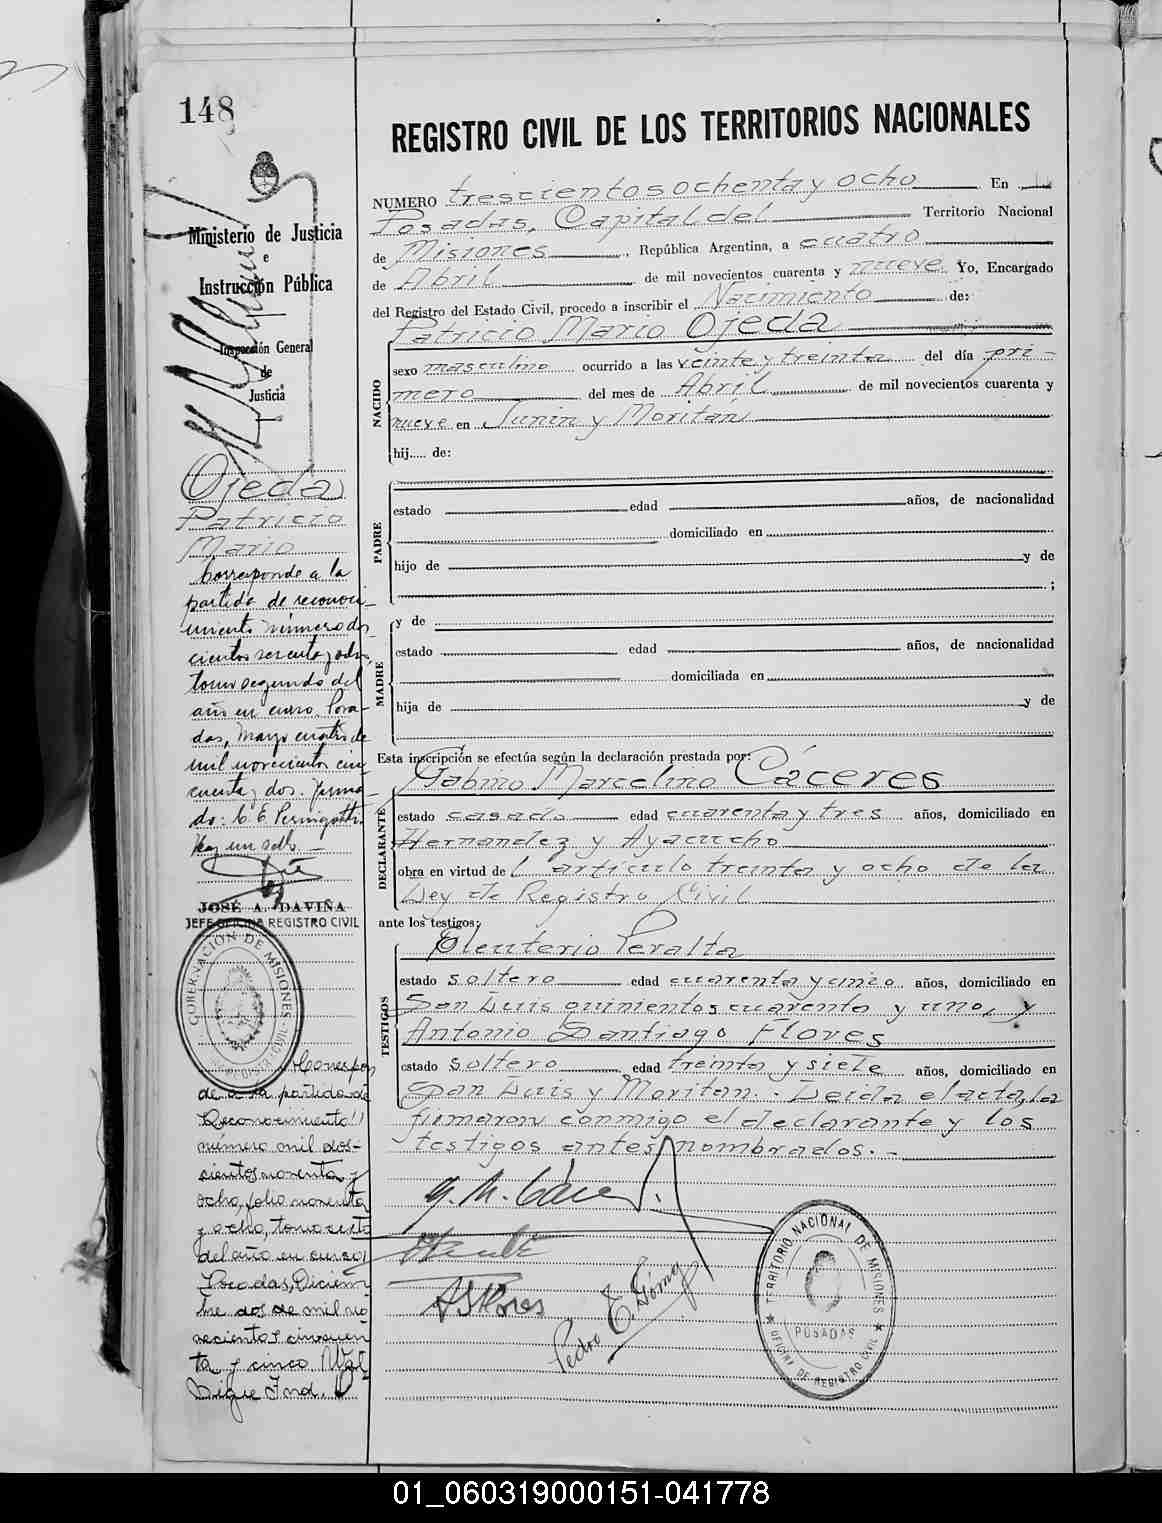 148
REGISTRO CIVIL DE LOS TERRITORIOS NACIONALES
Ministerio de Justicia
e
Instrucción Pública
Inspección General
de
Justicia
NUMERO trescientos ochenta y ocho En
Posadas, Capital del Territorio Nacional
de Misiones, República Argentina, a cuatro
de Abril de mil novecientos cuarenta y nueve Yo, Encargado
del Registro del Estado Civil, procedo a inscribir el Nacimiento de:
Patricio Mario Ojeda
NACIDO
sexo masculino ocurrido a las veinte y treinta del día pri-
mero del mes de Abril de mil novecientos cuarenta y
nueve en Junin y Moritan
hij..... de:
PADRE
estado edad años, de nacionalidad
domiciliado en
hijo de y de
;
MADRE
y de
estado edad años, de nacionalidad
domiciliada en
hija de y de
Esta inscripción se efectúa según la declaración prestada por:
Gabino Marcelino Cáceres
DECLARANTE
estado casado edad cuarenta y tres años, domiciliado en
Hernandez y Ayacucho
obra en virtud del artículo treinta y ocho de la
Ley de Registro Civil
ante los testigos:
Eleuterio Peralta
TESTIGOS
estado soltero edad cuarenta y cinco años, domiciliado en
San Luis quinientos cuarenta y uno, y
Antonio Santiago Flores
estado soltero edad treinta y siete años, domiciliado en
San Luis y Moritan.. Leida el acta, la
firmaron conmigo el declarante y los
testigos antes nombrados. -
G. M. Cáceres
A S Flores
Pedro E. Gómez
TERRITORIO NACIONAL DE MISIONES
POSADAS
OFICINA DE REGISTRO CIVIL
Ojeda
Patricio
Mario
Corresponde a la
partida de reconoci-
miento número dos
cientos sesenta y ocho,
tomo segundo del
año en curso. Posa-
das, Mayo cuatro de
mil novecientos cin
cuenta y dos. Firma-
do: C. E.
Hay un sello. -
JOSÉ A. DAVIÑA
JEFE OFICINA REGISTRO CIVIL
GOBERNACIÓN DE MISIONES
Correspon
de a la partida de
Reconocimiento
número mil dos-
cientos noventa y
ocho, folio noventa
y ocho, tomo sexto
del año en curso,
Posadas, Diciem
bre dos de mil no
vecientos cincuen
ta y cinco
01_060319000151-041778